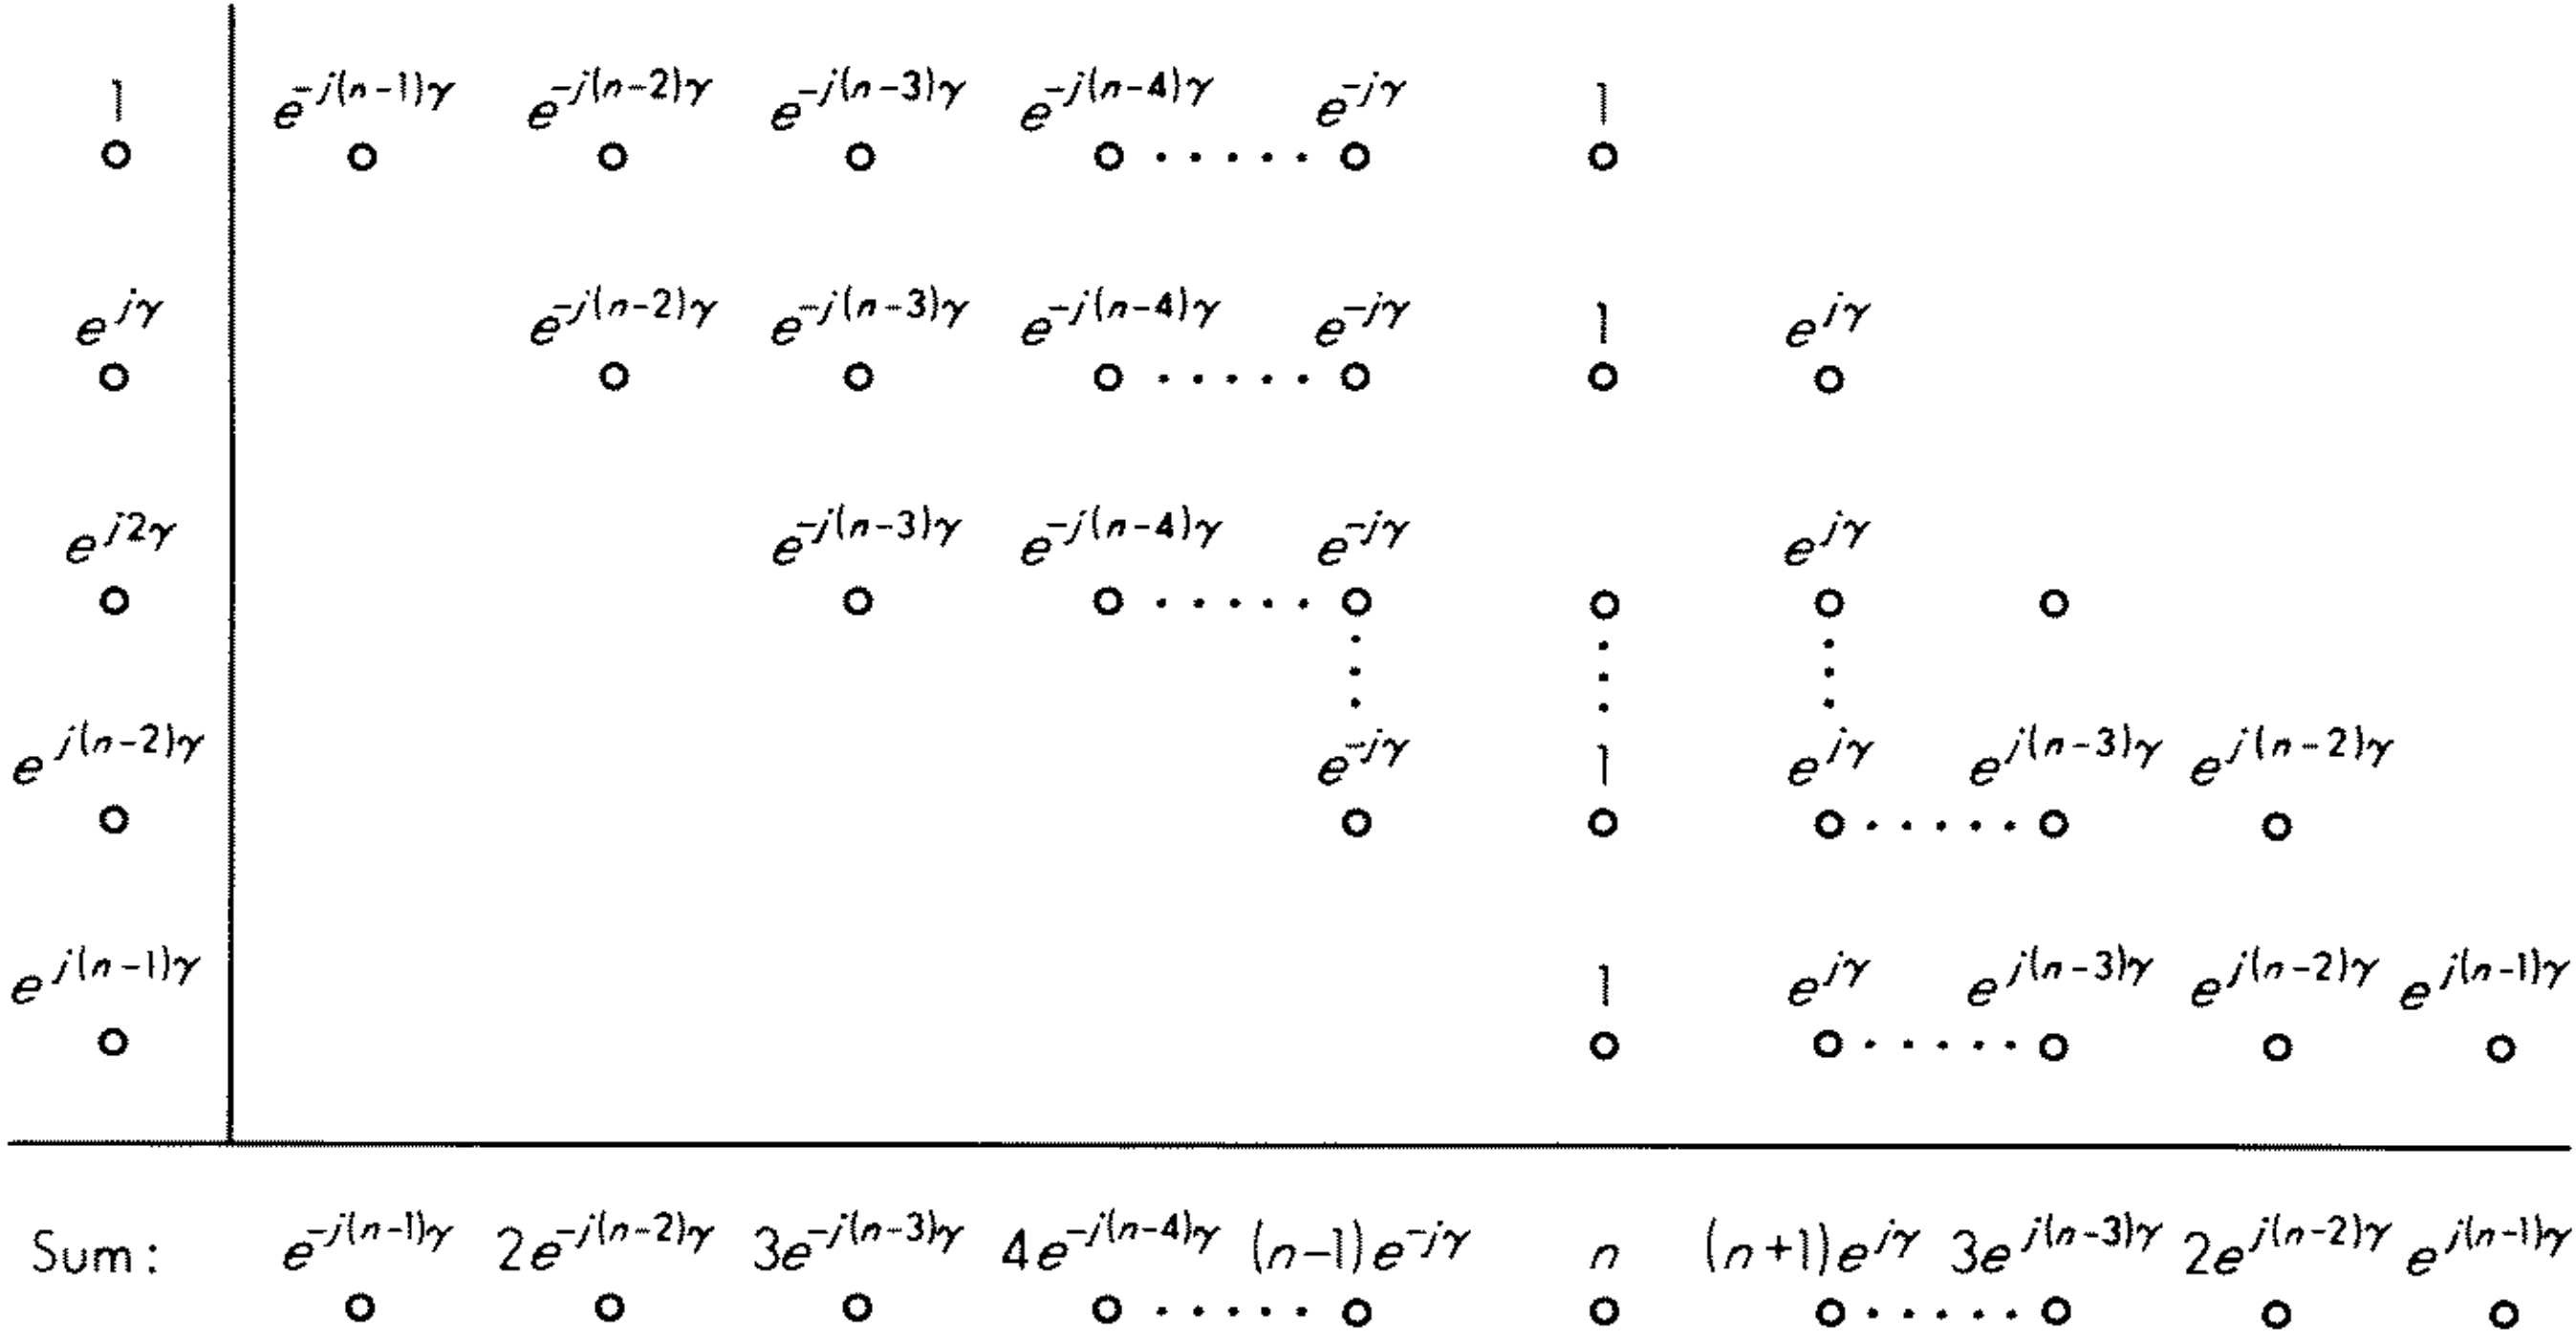 1 e^{-j(n-1)γ} e^{-j(n-2)γ} e^{-j(n-3)γ} e^{-j(n-4)γ} e^{-jγ} 1
e^{jγ} e^{-j(n-2)γ} e^{-j(n-3)γ} e^{-j(n-4)γ} e^{-jγ} 1 e^{jγ}
e^{j2γ} e^{-j(n-3)γ} e^{-j(n-4)γ} e^{-jγ} e^{jγ}
e^{j(n-2)γ} e^{-jγ} 1 e^{jγ} e^{j(n-3)γ} e^{j(n-2)γ}
e^{j(n-1)γ} 1 e^{jγ} e^{j(n-3)γ} e^{j(n-2)γ} e^{j(n-1)γ}
Sum: e^{-j(n-1)γ} 2e^{-j(n-2)γ} 3e^{-j(n-3)γ} 4e^{-j(n-4)γ} (n-1)e^{-jγ} n (n+1)e^{jγ} 3e^{j(n-3)γ} 2e^{j(n-2)γ} e^{j(n-1)γ}